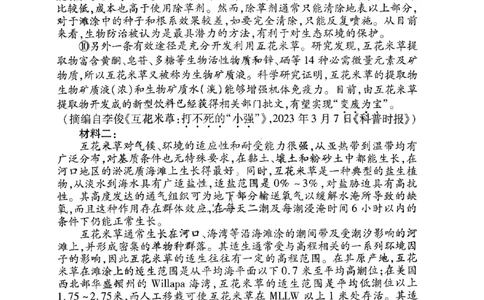 比较低,成本也高于使用除草剂。然而,除草剂通常只能清除地表以上部分,
对于滩涂中的种子和根系效果较差,如要完全清除,只能反复喷施。从目前
来看,生物防治被认为是最具潜力的方法,有利于对生态环境的保护。
⑩另外一条有效途径是充分开发利用互花米草。研究发现,互花米草提
取物富含黄酮、皂苷、多糖等生物活性物质和锌、硒等 14 种必需微量元素及矿
物质,所以互花米草又被称为生物矿质液。科学研究证明,互花米草的提取物
生物矿质液(浓)和生物矿质水(液)能够增强机体免疫力。目前,由互花米草
提取物开发成的新型饮料已经获得相关部门批文,有望实现“变废为宝”。
(摘编自李俊《互花米草:打不死的“小强”》,2023 年 3 月 7 日《科普时报》)
材料二:
互花米草对气候、环境的适应性和耐受能力很强,从亚热带到温带均有
广泛分布,对基质条件也无特殊要求,在黏土、壤土和粉砂土中都能生长,在
河口地区的淤泥质海滩上生长得最好。同时,互花米草是一种典型的盐生植
物,从淡水到海水具有广适盐性,适盐范围是 0% ~3%,对盐胁迫具有高抗
性。其高度发达的通气组织可为地下部分输送氧气以缓解水淹所导致的缺
氧,而且这种作用存在群体效应,在每天二潮及每潮浸淹时间 6 小时以内的
条件下仍能正常生长。
互花米草通常生长在河口、海湾等沿海滩涂的潮间带及受潮汐影响的河
滩上,并形成密集的单物种群落。其适生通常受与高程相关的一系列环境因
子的影响,因此互花米草的适生往往有一定的高程范围。在其原产地,互花
米草在滩涂上的适生范围是从平均海平面以下 0.7 米至平均高潮位;在美国
西北部华盛顿州的 Willapa 海湾,互花米草的适生范围是平均低潮位以上
1.75~2.75米,而人工移栽可使互花米草在 MLLW 以上 1 米处存活。其适